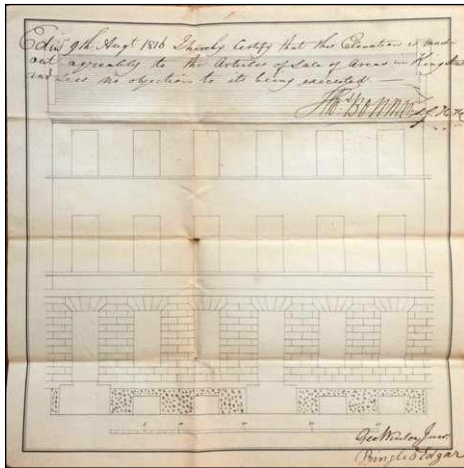 Edinr 9th Augt 1816 I hereby Certify that this Elevation is made
out agreeably to the Articles of Sale of Areas in
and sees no objection to its being executed
Thos. Bonnar
Geo Winton Junr
Pringle & Edgar